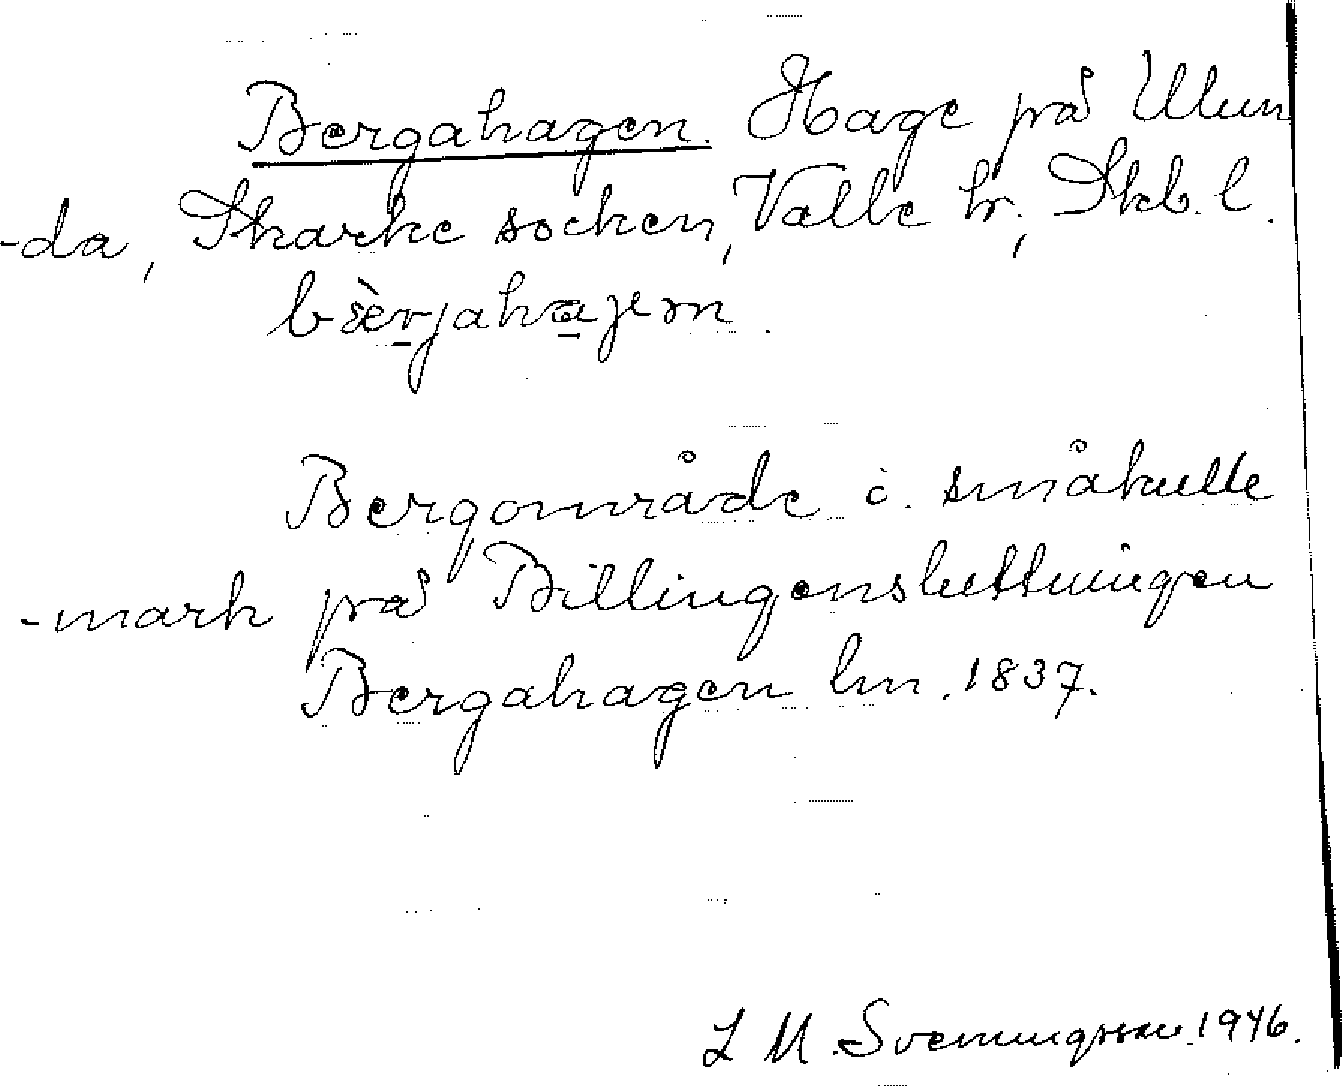 Bergahagen. Hage på Ulun
-da, Skarke socken, Valle hr, Skb. l.
bæ̀rjahajem.
Bergområde i småkulle
-mark på Billingensluttningen
Bergahagen lm. 1837.
L M. Svenungsson 1946.